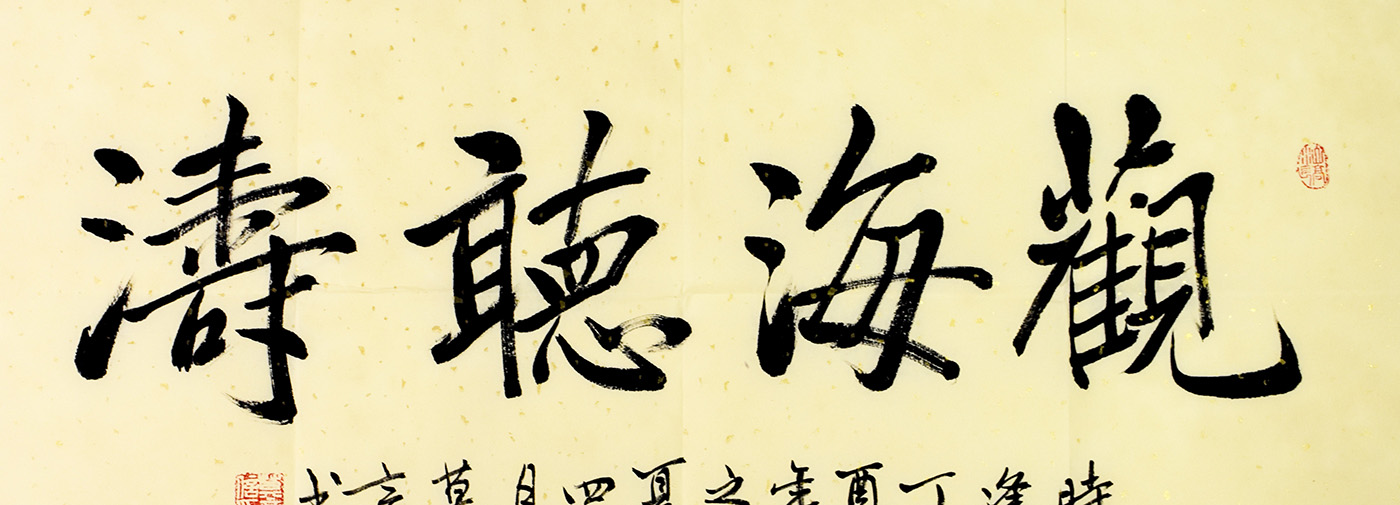 觀海聽濤
時逢丁酉年之夏四月莫言书